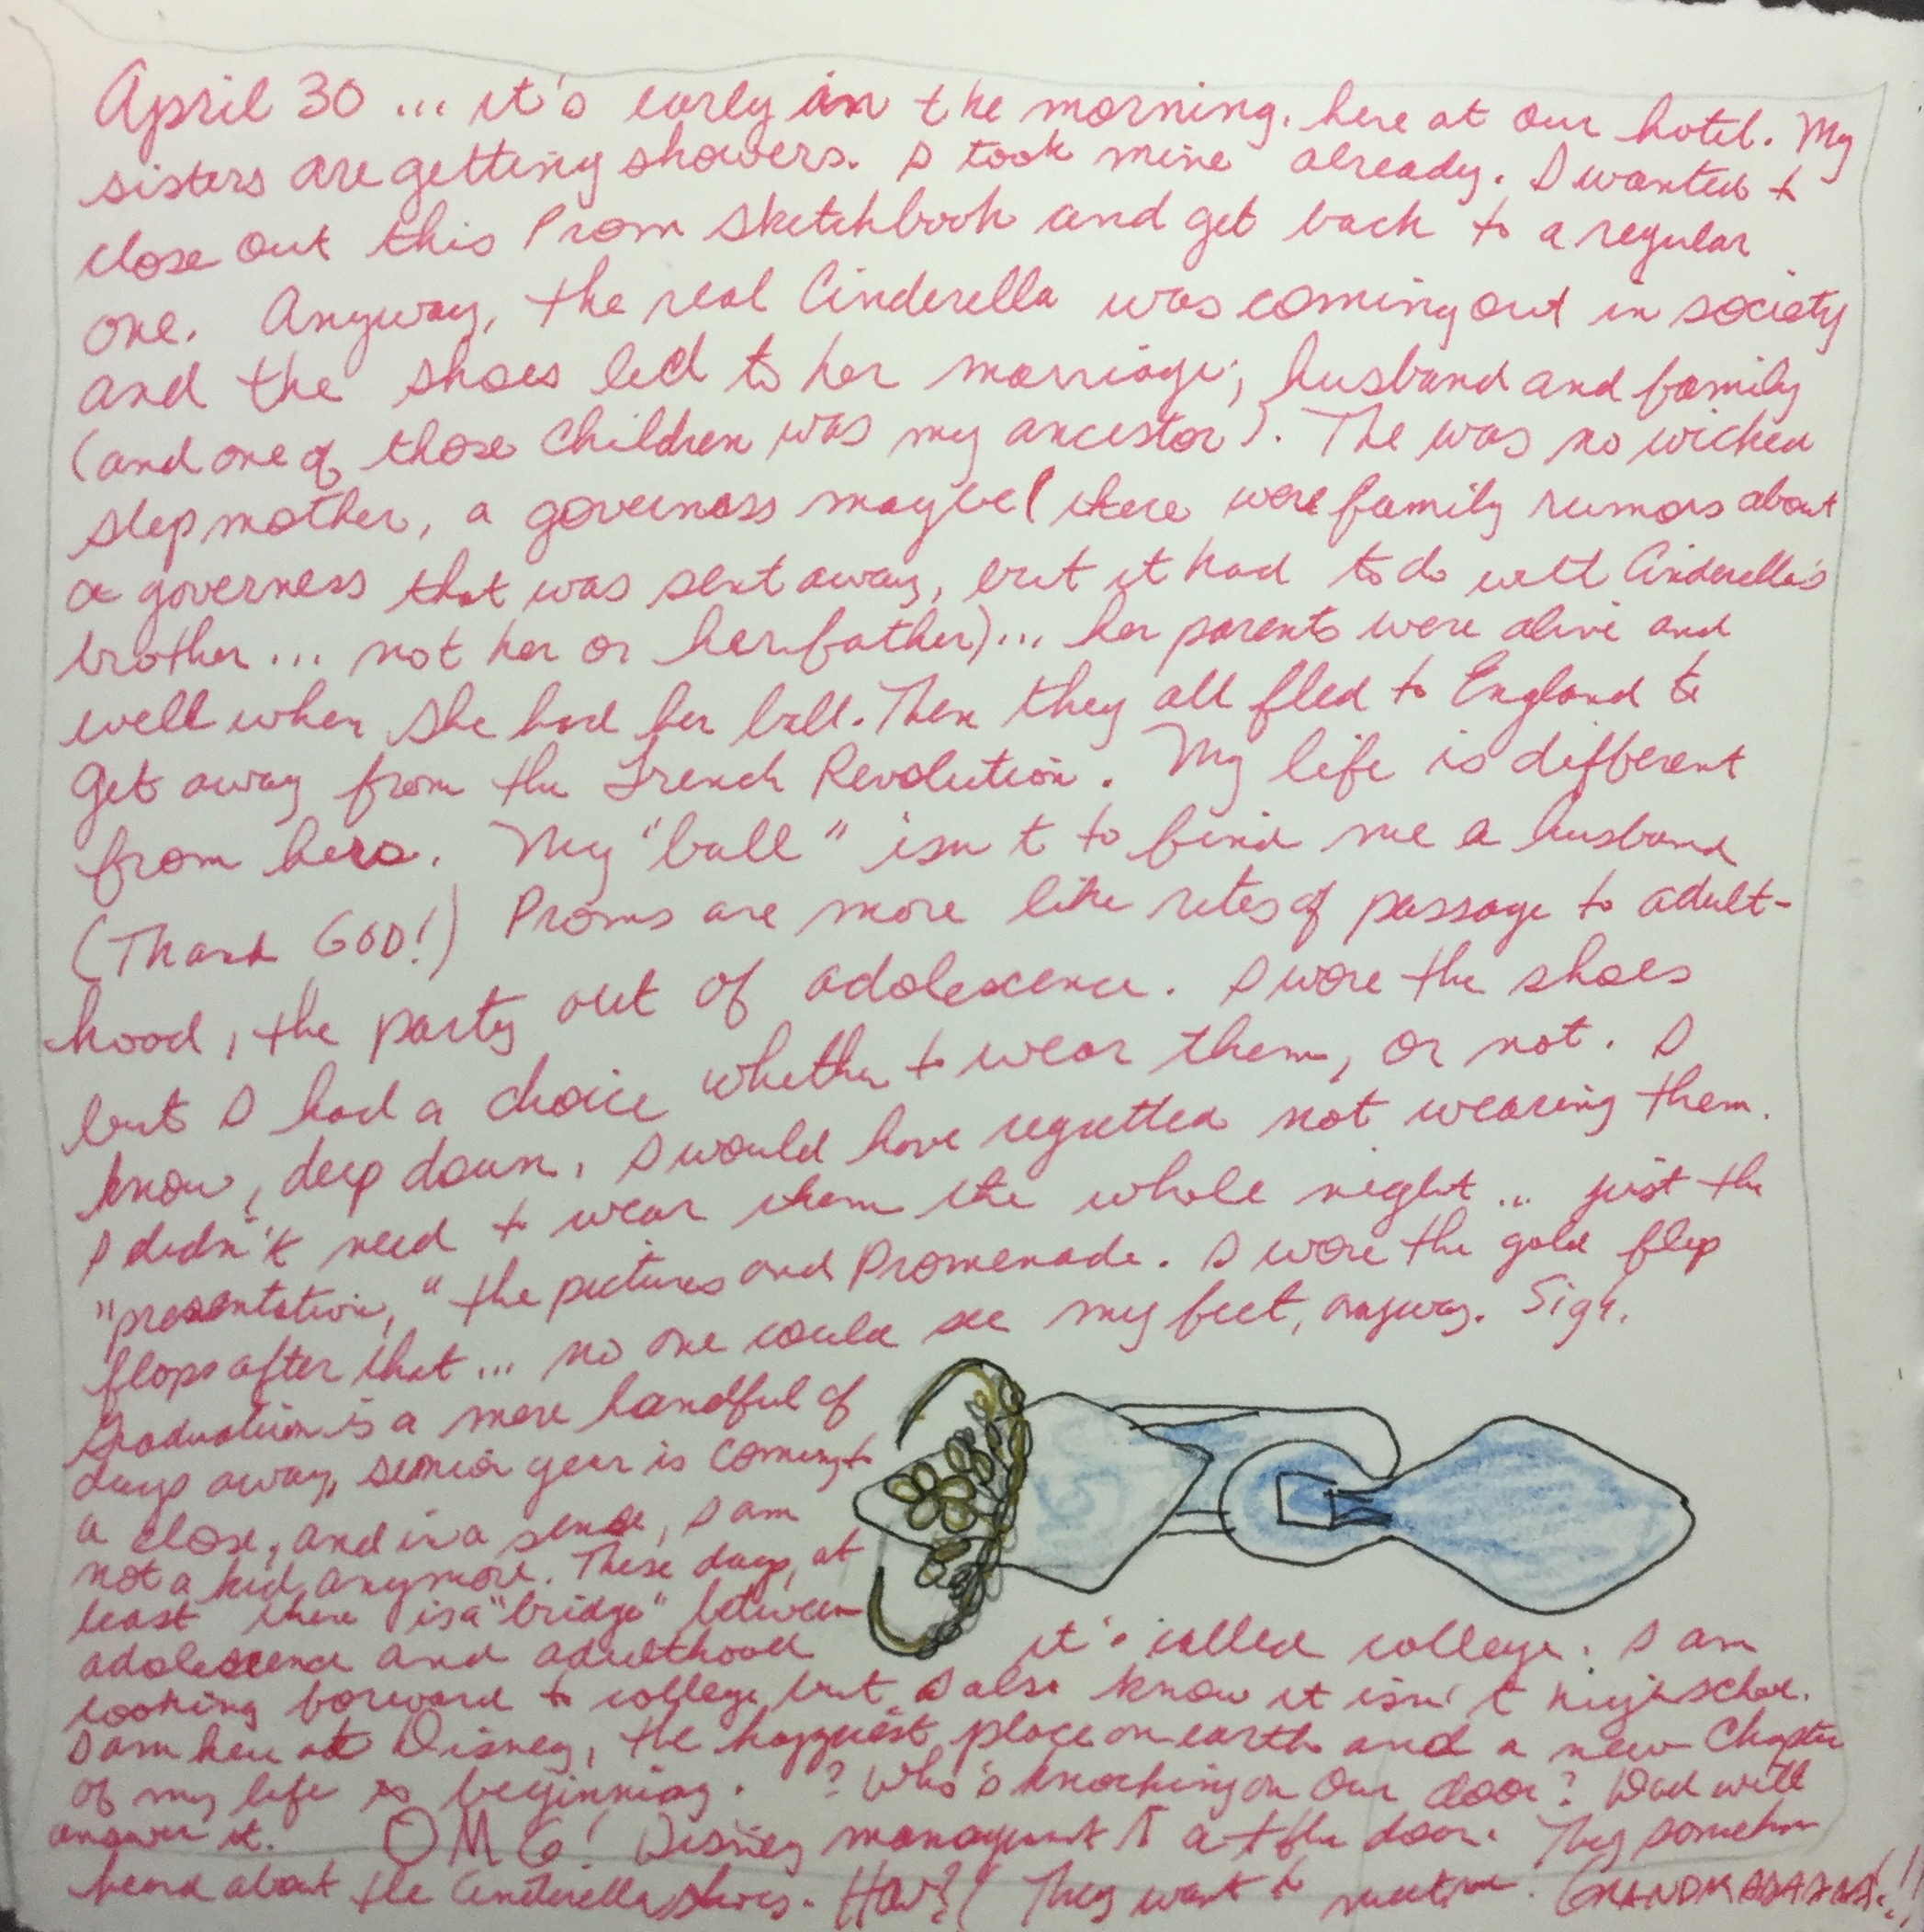 April 30 ... it's early in the morning, here at our hotel. My
sisters are getting showers. I took mine already. I wanted to
close out this Prom sketchbook and get back to a regular
one. Anyway, the real Cinderella was coming out in society
and the shoes led to her marriage; husband and family
(and one of those children was my ancestor). The was no wicked
stepmother, a governess maybe (there were family rumors about
a governess that was sent away, but it had to do with Cinderella's
brother... not her or her father)... her parents were alive and
well when she had her ball. Then they all fled to England to
get away from the French Revolution. My life is different
from hers. My "ball" isn't to find me a husband
(Thank GOD!) Proms are more like rites of passage to adult-
hood, the party out of adolescence. I wore the shoes
but I had a choice whether to wear them, or not. I
know, deep down, I would have regretted not wearing them.
I didn't need to wear them the whole night... just the
"presentation," the pictures and Promenade. I wore the gold flip
flops after that... no one could see my feet, anyway. Sigh.
Graduation is a mere handful of
days away, senior year is coming to
a close, and in a sense, I am
not a kid anymore. These days, at
least there is a "bridge" between
adolescence and adulthood it's called college. I am
looking forward to college, but I also know it isn't high school.
I am here at Disney, the happiest place on earth and a new chapter
of my life is beginning. ? Who's knocking on our door? Dad will
answer it. OMG! Disney management is at the door. They somehow
heard about the Cinderella shoes. How?! They want to meet me.